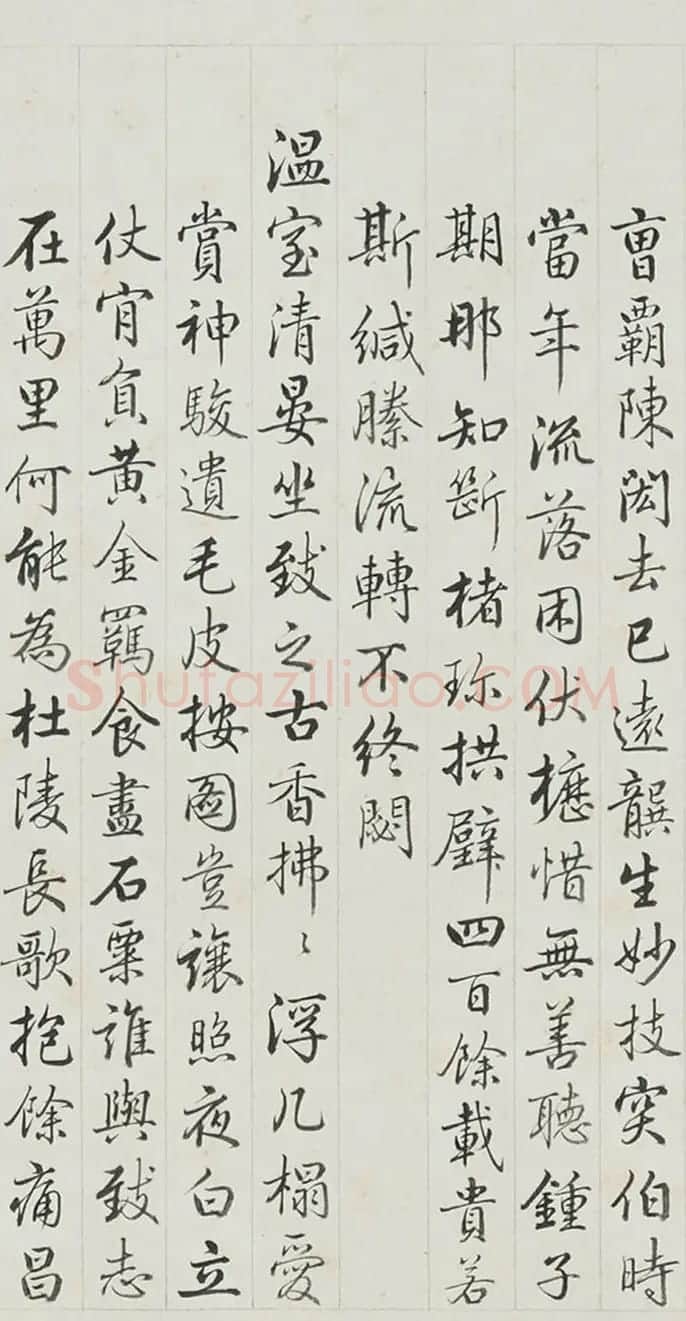 曹霸陳閎去已遠龔生妙技突伯時
當年流落困伏櫪惜無善聽鍾子
期那知斷楮珍拱璧四百餘載貴若
斯緘縢流轉不終閟
溫室清晏坐致之古香拂〻浮几榻愛
賞神駿遺毛皮按圖豈讓照夜白立
仗肎負黃金羈食盡石粟誰與致志
在萬里何能為杜陵長歌抱餘痛昌
Shufaziliao.COM